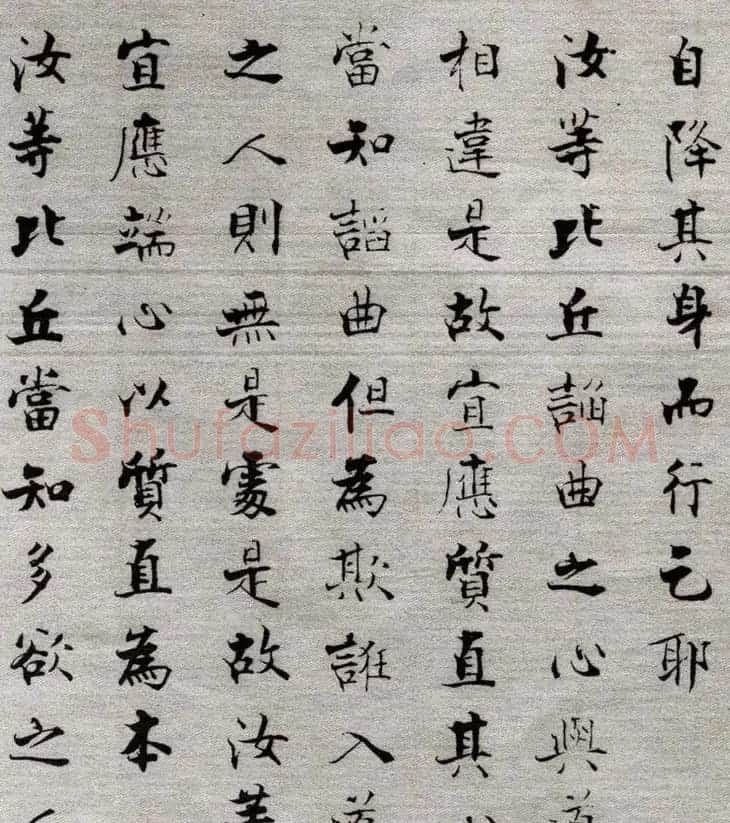 自降其身而行乞耶
汝等比丘諂曲之心與道
相違是故宜應質直其
當知諂曲但為欺誑入道
之人則無是處是故汝等
宜應端心以質直為本
汝等比丘當知多欲之
Shufaziliao.COM